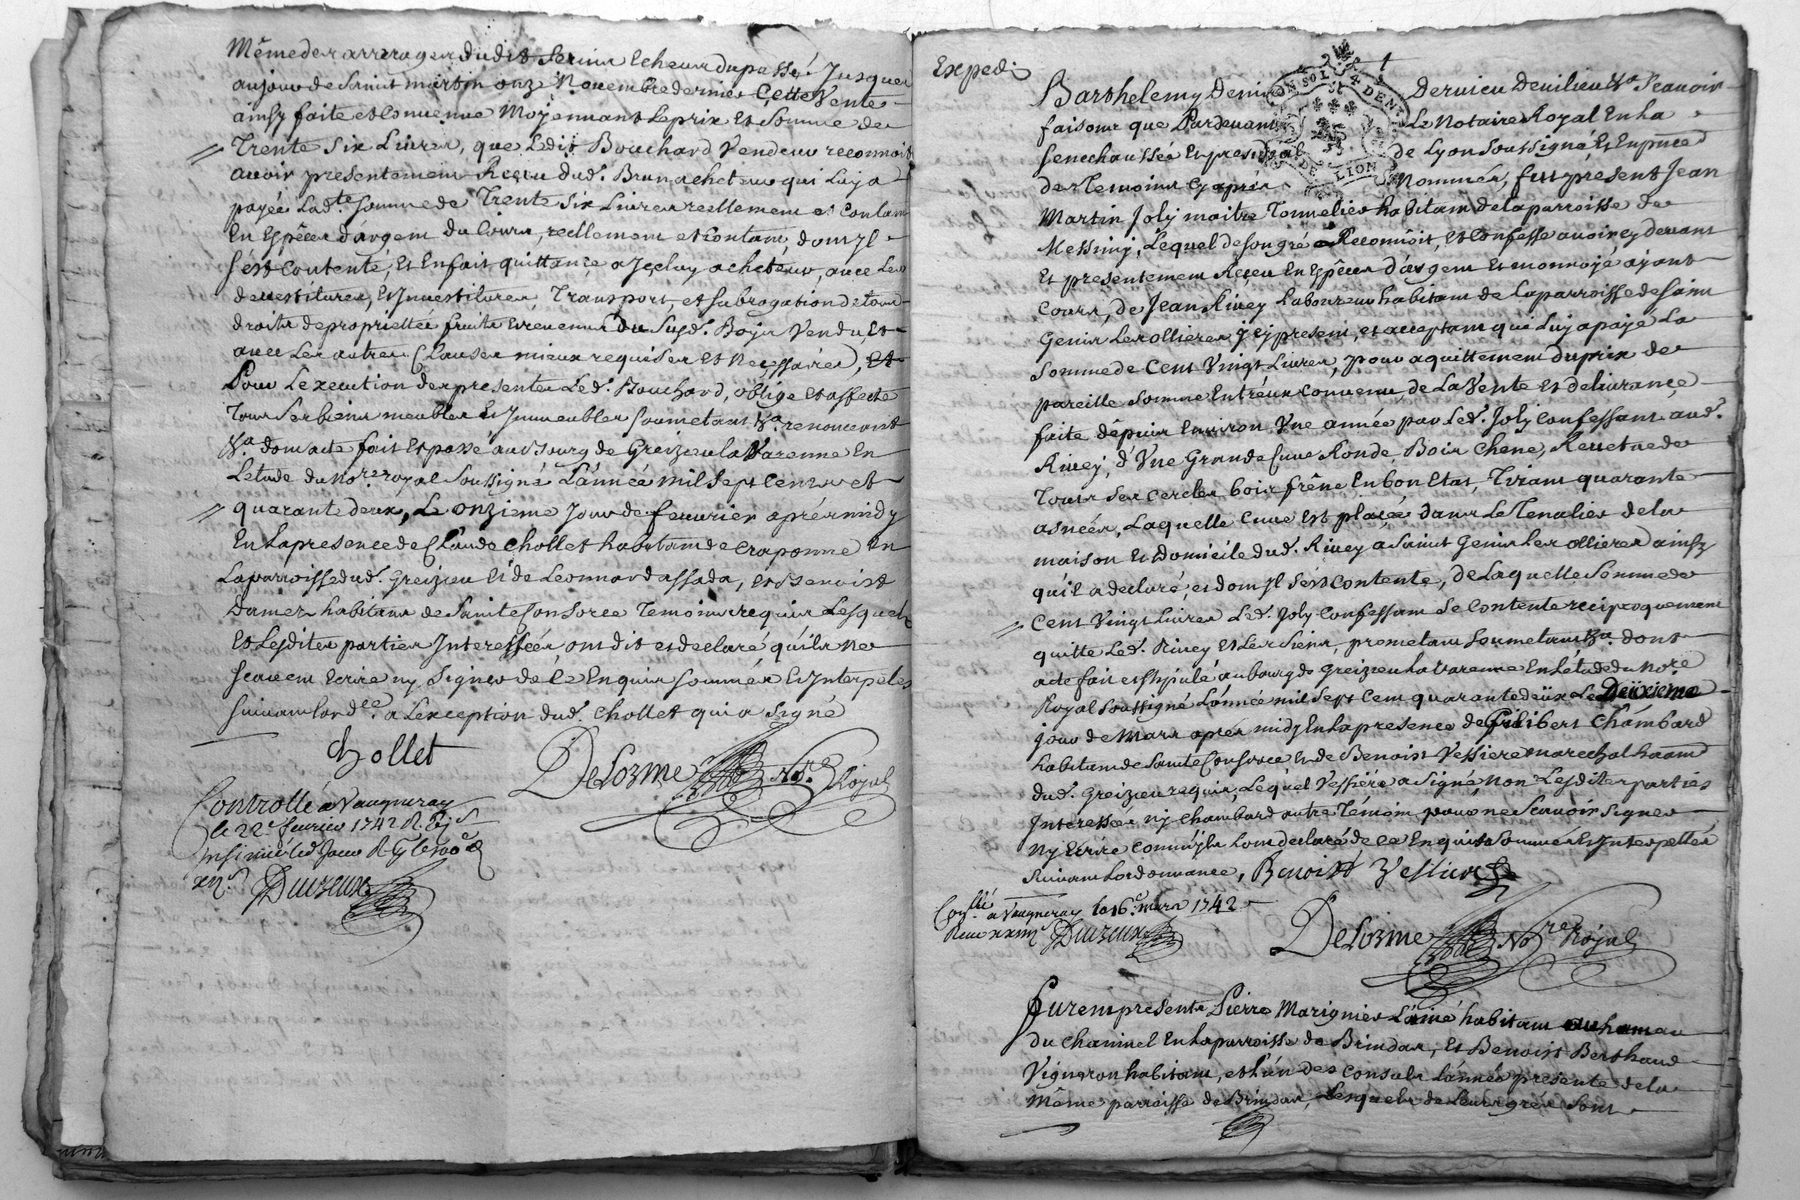 Même des arrerages dudit servis echeus du passé Jusques
aujour de Saint martin onze Novembre dernier Cette Vente
ainsy faite et Convenue Moyennant le prix et Somme de
Trente Six Livres, que Ledit Bouchard Vendeur reconnoit
avoir presentement Reçeu dud. Brun acheteur qui Luy a
payée Lad.te Somme de Trente Six Livres reellement et Contant
En Espêces d'argent du Cours, reellement et Contant, dont Jl
s'est Contenté, et En fait quittance a Jceluy acheteur, avec Les
devestitures, et Jnvestitures, Transport, et Subrogation de tous
droits de proprietteé fruits et revenus du Susd. Bois Vendu, et
avec Les autres Clauses mieux requises et Necessaires, et
Pour L'execution des presentes Led. Bouchard, oblige et affecte
Tous Ses biens meubles et Jmmeubles Soumettant &a. renonceant
&a. dont acte fait et passé au Bourg de Greizieu la Varenne En
L'etude du No.re royal Soussigné L'année mil Sept Cents et
quarante deux, Le onzieme Jour de fevrier aprés midy
En La presence de Claude Chollet habitant de Craponne En
La parroisse dud. Greizieu et de Leonnard assada, et Benoist
Damez habitans de Sainte Consorce Temoins requis Lesquels
et Lesdites parties Jnteressées, ont dit et declaré qu'ils ne
Scavent Ecrire ny Signer de ce Enquis Sommés et Jnterpelés
Suivant Lord.ce a L'exception dud. Chollet qui a Signé
Chollet
Delorme No.re Royal
Controllé a Vaugneray
le 22e fevrier 1742 R.
Insinué led Jour R
Duizeux
Exped:
GON SOLS 4 DEN
G DE LION
Barthelemy Denis Dervieu Devilieu &a Scavoir
faisons que Pardevant Le Notaire Royal En La
Senechaussée et presidial de Lyon Soussigné et En pnce
des Temoins Cy aprés Nommés, fut présent Jean
Martin Joly maitre Tonnelier habitant de la parroisse de
Messimy, Lequel de Son gré a Reconnû, et Confesse avoir cy devant
Et presentement Reçeu En Espêces d'argent et monnoye ayant
Cours, de Jean Rivey Laboureur habitant de La parroisse de Saint
Genis Les ollieres Jcy present, et acceptant qui Luy a payé La
Somme de Cent Vingt Livres, pour aquittement du prix de
pareille Somme Entr'eux Convenu, de La Vente et délivrance
faite dépuis Environ Vne année par Led. Joly Confessant aud.
Rivey, d'Vne Grande Cuve Ronde, Bois Chene, Revetue de
Tous Ses Cercles bois frêne En bon Etat, Tirant quarante
asnées, Laquelle Cuve Est placée dans Le Tenalier de la
maison et domicile dud. Rivey a Saint Genis Les ollieres ainsy
qu'il a declaré, et dont Jl s'est Contente, de Laquelle Somme de
Cent Vingt Livres Led. Joly Confessant Se Contente réciproquement
quitte Led. Rivey et Les Siens, prometant Soumetant &a. dont
acte fait et stipulé au bourg de Greizieu La Varenne En L'étude du No.re
Royal Soussigné L'année mil Sept Cent quarante deüx Le Deüxieme
jour de Mars aprés midy En La presence de Philibert Chambard
habitant de Sainte Consorce et de Benoist Vessiere marechal habitant
dud. Greizieu requis, Lequel Vessiere a Signé, Non Lesdites parties
Jnteressées ny Chambard autre Témoin, pour ne Scavoir Signer
Ny Ecrire Comm'ils L'ont declaré de ce Enquis et Sommés et Jnterpellés
Suivant Lordonnance, Benoist Vessiere
Con.llé a Vaugneray le 16e mars 1742
Duizeux
Delorme No.re Royal
furent presents Pierre Marignier L'ainé habitant au hameau
du Chaninel En La parroisse de Brindas, et Benoist Berthaud
Vigneron habitant, et l'ún des Consuls L'année présente de la
Même parroisse de Brindas, Lesquels de Leurs grés Sont